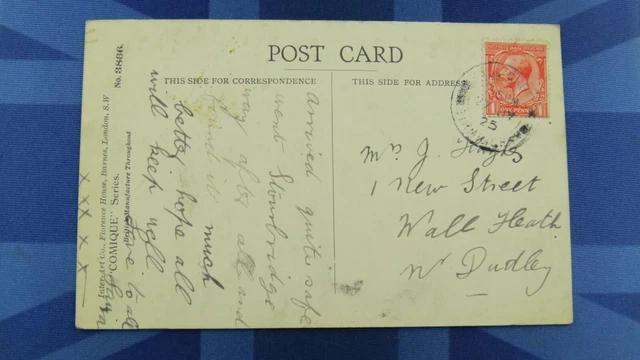 POST CARD
THIS SIDE FOR CORRESPONDENCE
THIS SIDE FOR ADDRESS
No. 3866.
Inter-Art Co., Florence House, Barnes, London, S.W
"COMIQUE" Series.
British Manufacture Throughout
arrived quite safe
went Stourbridge
way after all and
found it much
better hope all
will keep well
love to all
x x x x x
1 1
ONE PENNY
25
Mrs J.
1 New Street
Wall Heath
Nr Dudley